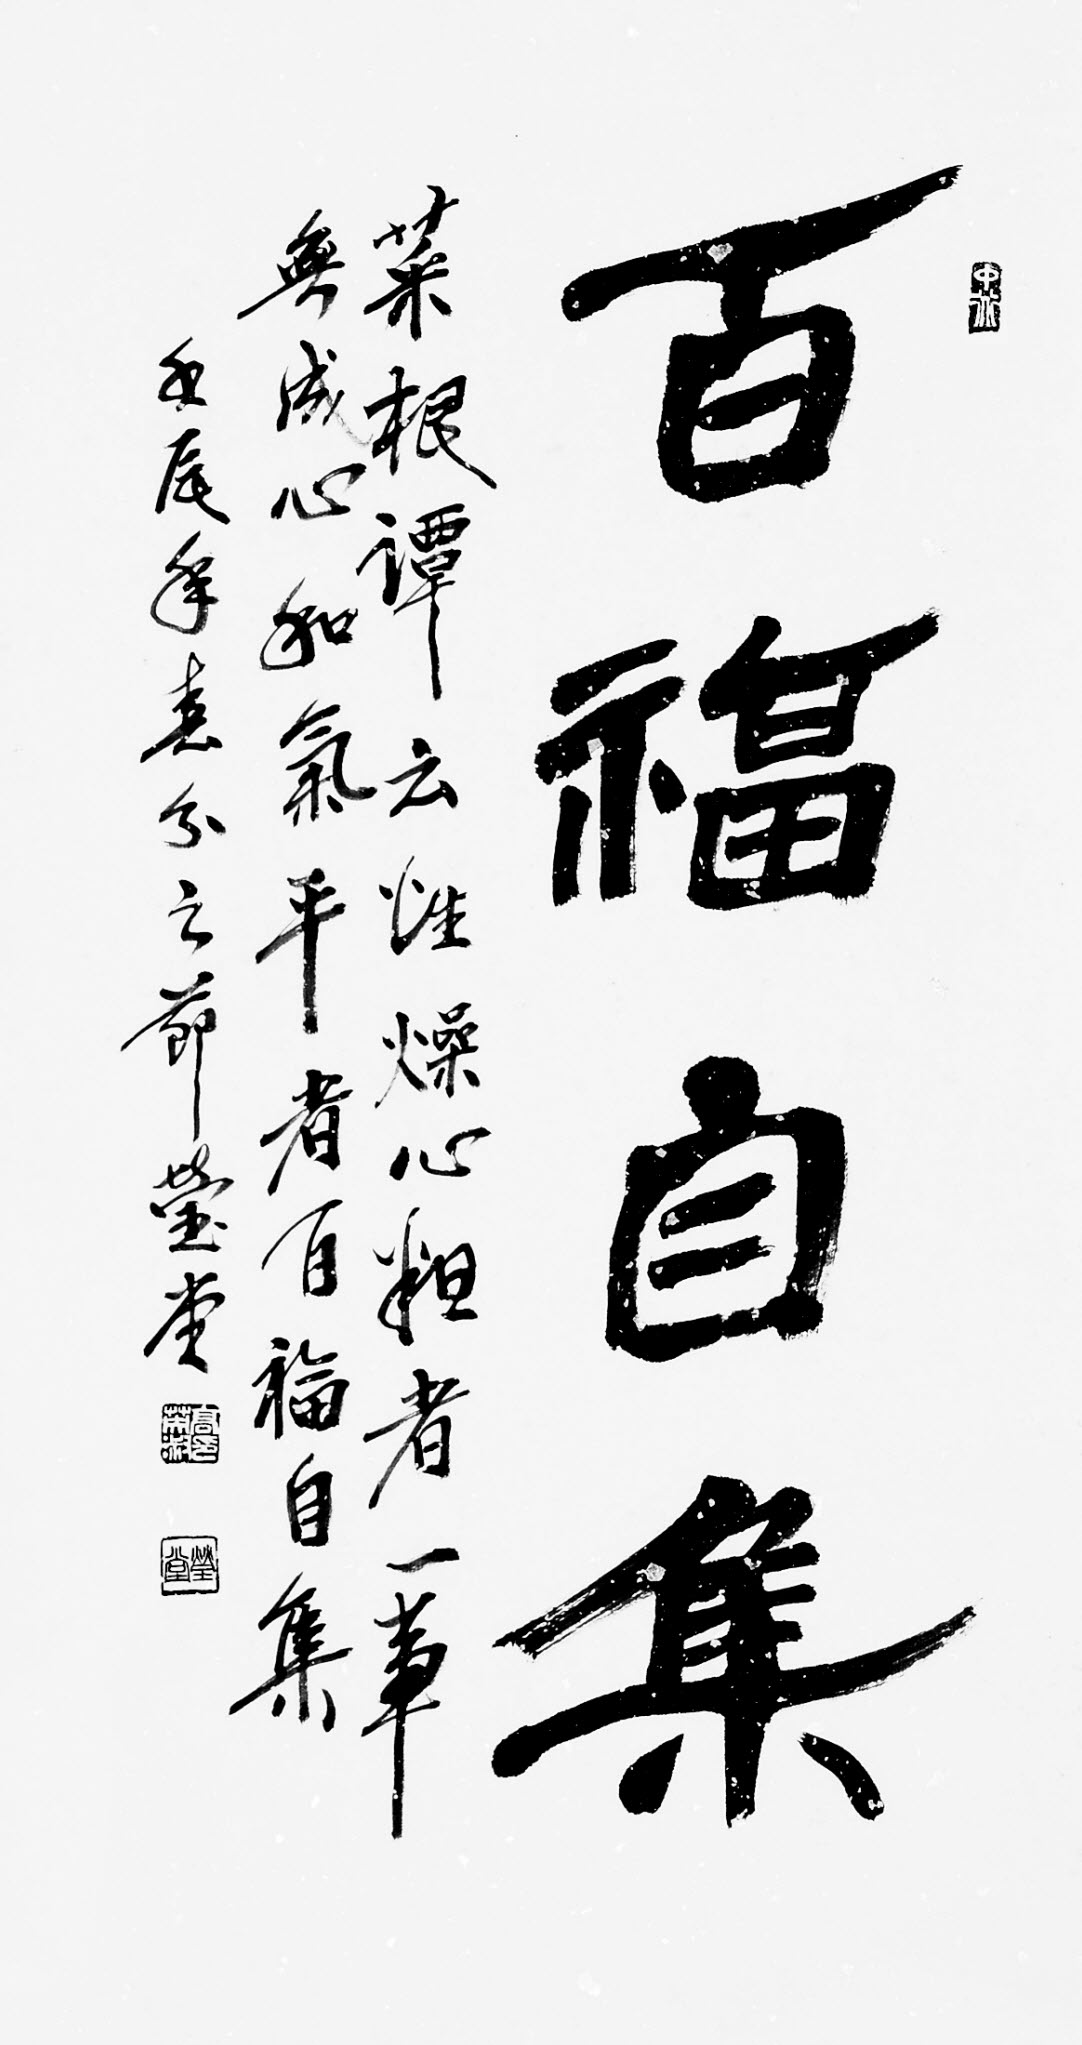 百福自集
菜根譚云性燥心粗者一事
無成心和氣平者百福自集
壬辰年春分之節瑩堂
瑩堂